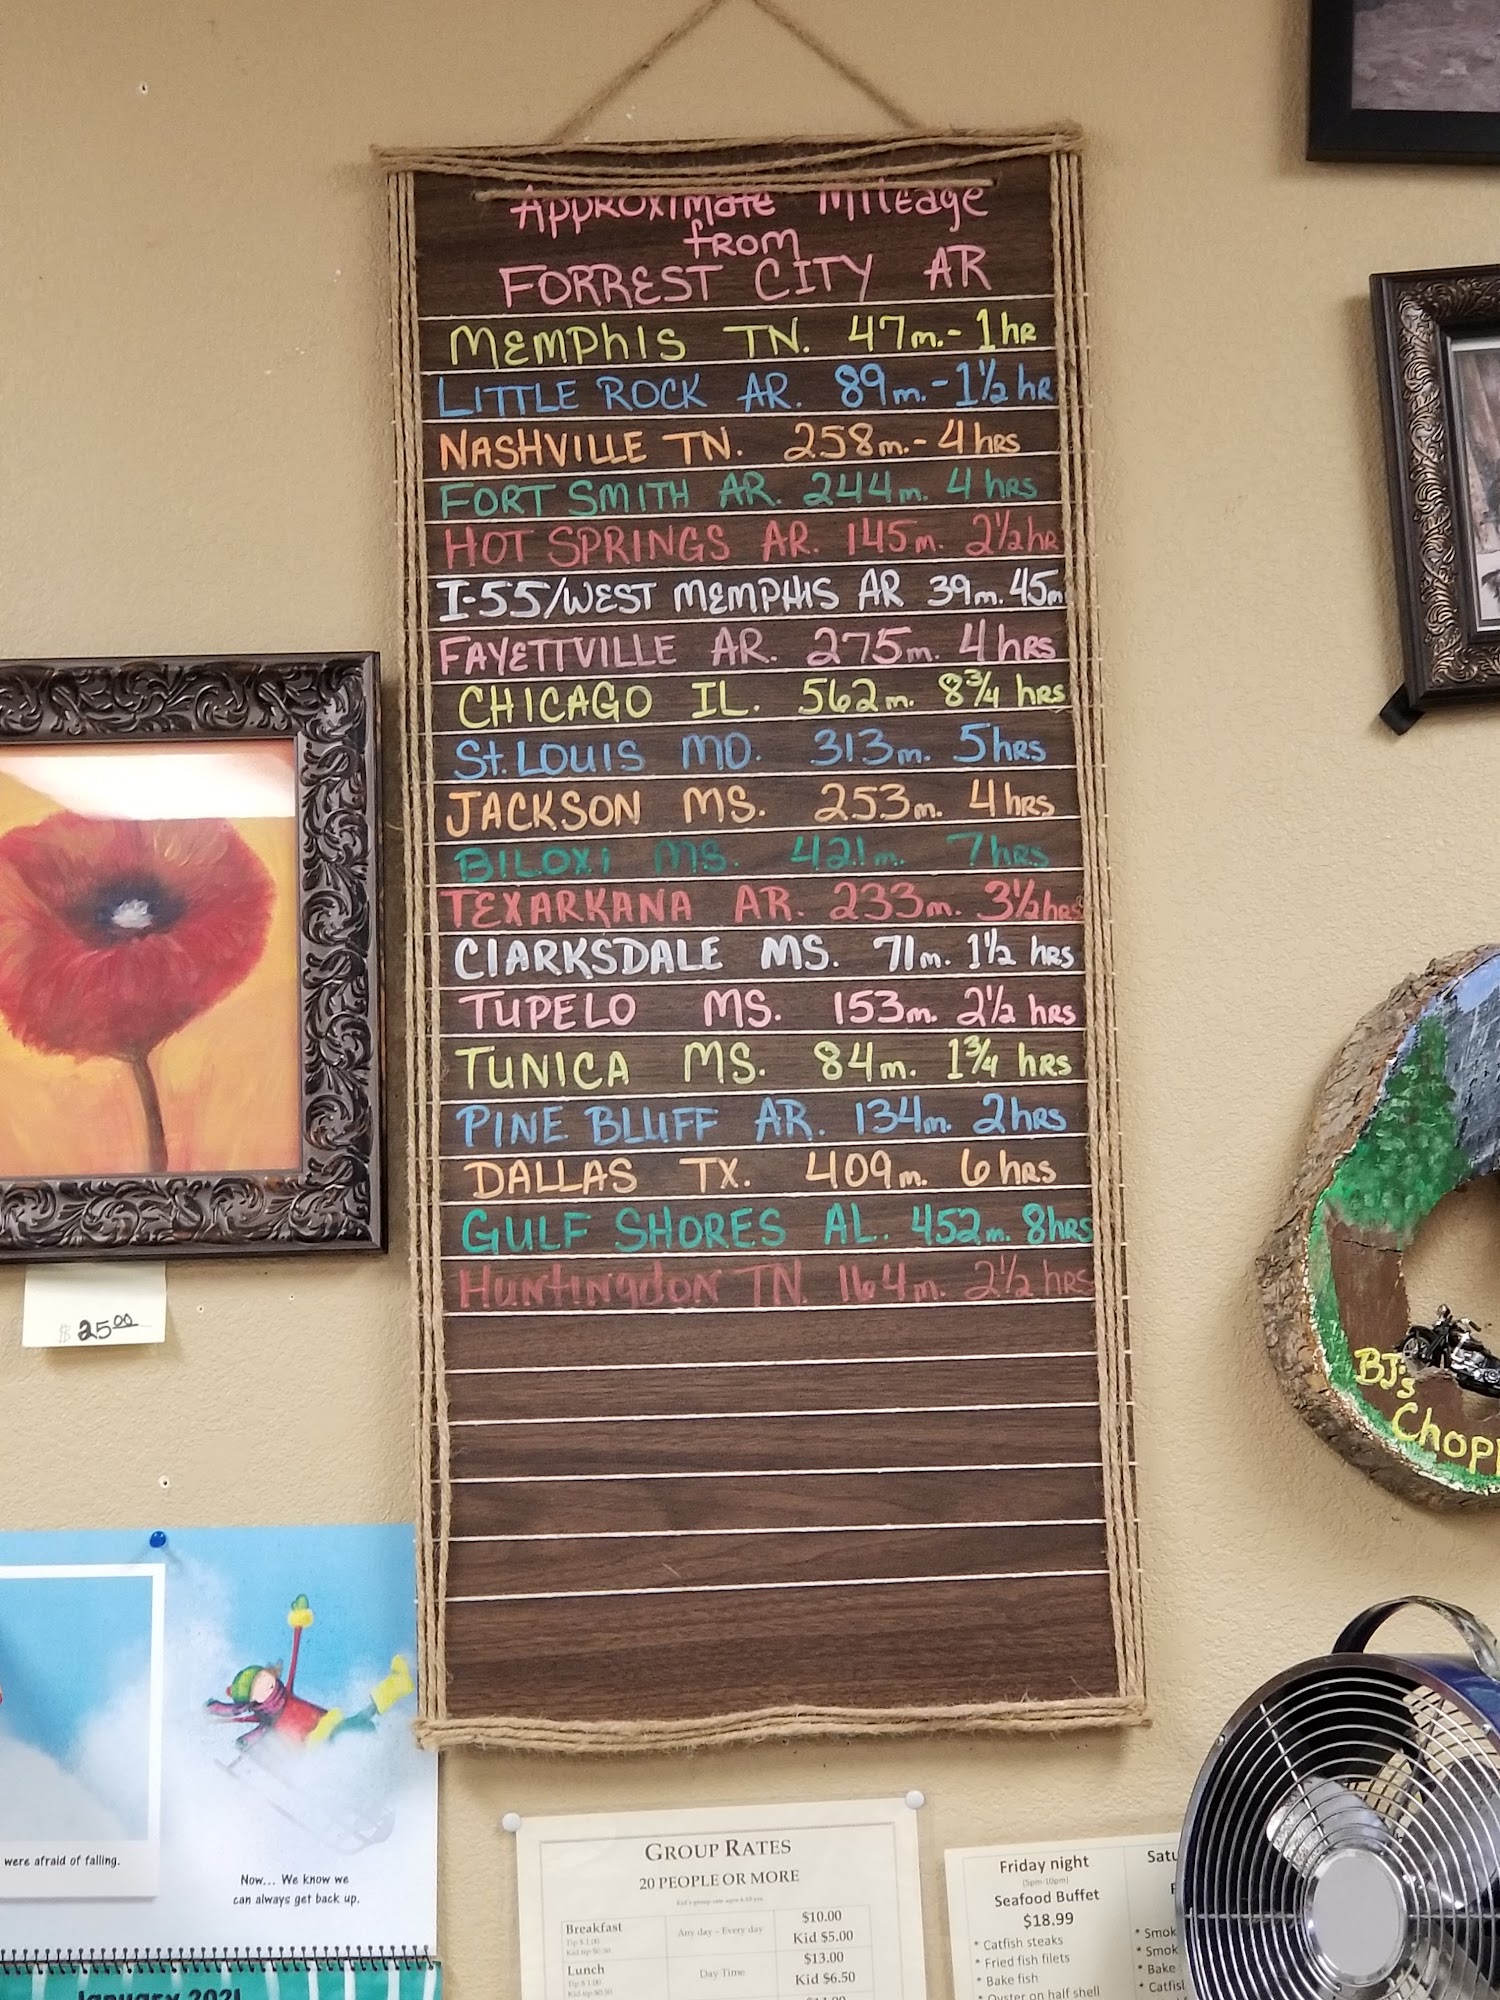 Approximate Mileage
from
FORREST CITY AR
MEMPHIS TN. 47m.- 1hr
LITTLE ROCK AR. 89m.- 1½ hr
NASHVILLE TN. 258m.- 4 hrs
FORT SMITH AR. 244m. 4 hrs
HOT SPRINGS AR. 145m. 2½ hr
I-55/WEST MEMPHIS AR 39m. 45m
FAYETTVILLE AR. 275m. 4 hrs
CHICAGO IL. 562m. 8¾ hrs
St. LOUIS MO. 313m. 5 hrs
JACKSON MS. 253m. 4 hrs
BILOXI MS. 421m. 7 hrs
TEXARKANA AR. 233m. 3½ hrs
CLARKSDALE MS. 71m. 1½ hrs
TUPELO MS. 153m. 2½ hrs
TUNICA MS. 84m. 1¾ hrs
PINE BLUFF AR. 134m. 2 hrs
DALLAS TX. 409m. 6 hrs
GULF SHORES AL. 452m. 8 hrs
Huntingdon TN. 164m. 2½ hrs
$ 25.00
BJ's
Chopp
were afraid of falling.
Now... We know we
can always get back up.
January 2021
GROUP RATES
20 PEOPLE OR MORE
Breakfast Any day – Every day $10.00
Tip $1.00 Kid $5.00
Lunch Day Time $13.00
Tip $1.00 Kid $6.50
Friday night
(5pm-10pm)
Seafood Buffet
$18.99
* Catfish steaks
* Fried fish filets
* Bake fish
* Oyster on half shell
Satu
* Smok
* Smok
* Bake
* Catfis